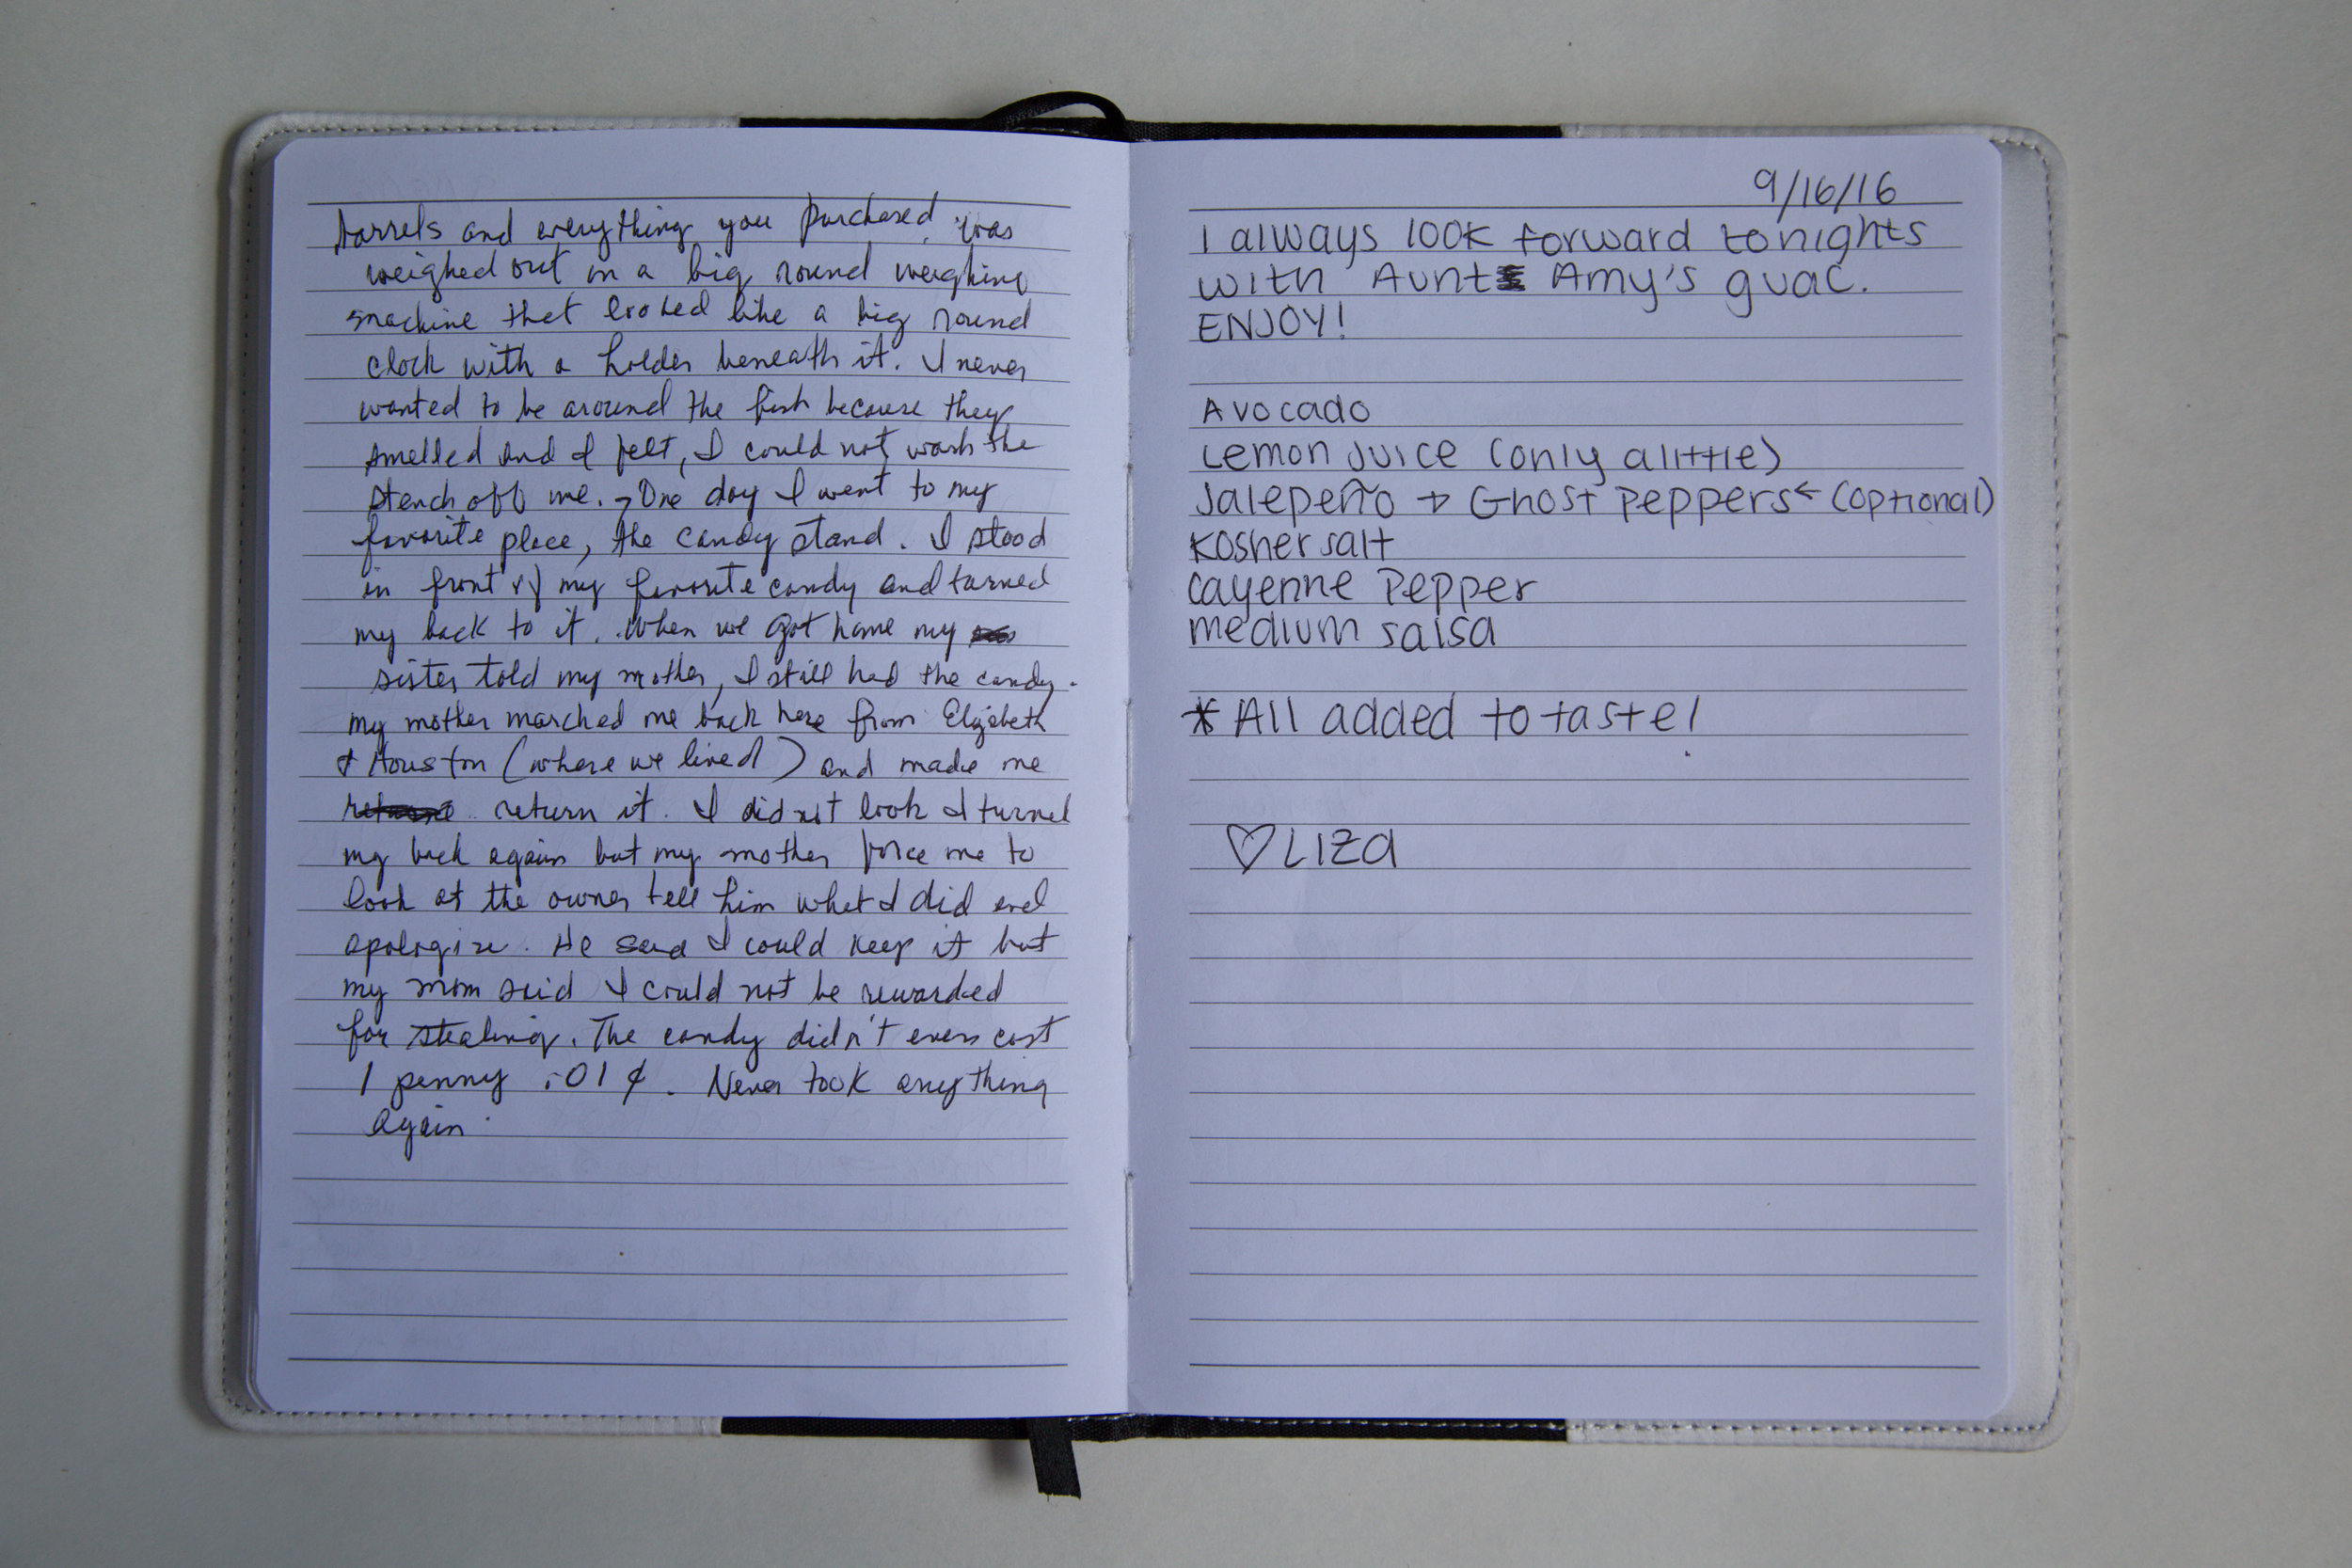 barrels and everything you purchased was
weighed out in a big round weighing
machine that looked like a big round
clock with a holder beneath it. I never
wanted to be around the fish because they
smelled and I felt, I could not wash the
stench off me. One day I went to my
favorite place, the candy stand. I stood
in front of my favorite candy and turned
my back to it. When we got home my
sister told my mother, I still had the candy.
my mother marched me back here from Elizabeth
& Houston (where we lived) and made me
return it. I did not look I turned
my back again but my mother force me to
look at the owner tell him what I did and
apologize. He said I could keep it but
my mom said I could not be rewarded
for stealing. The candy didn't even cost
1 penny .01¢. Never took anything
again.
9/16/16
I always look forward to nights
with Aunt Amy's guac.
ENJOY!
Avocado
Lemon Juice (only a little)
Jalepeño → Ghost peppers ← (optional)
Kosher salt
Cayenne Pepper
medium salsa
* All added to taste!
♡ LIZA